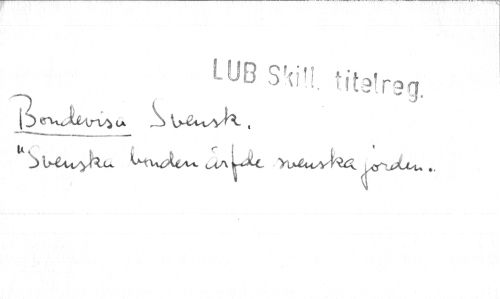 LUB Skill. titelreg.
Bondevisa Svensk.
"Svenska bonden ärfde svenska jorden..